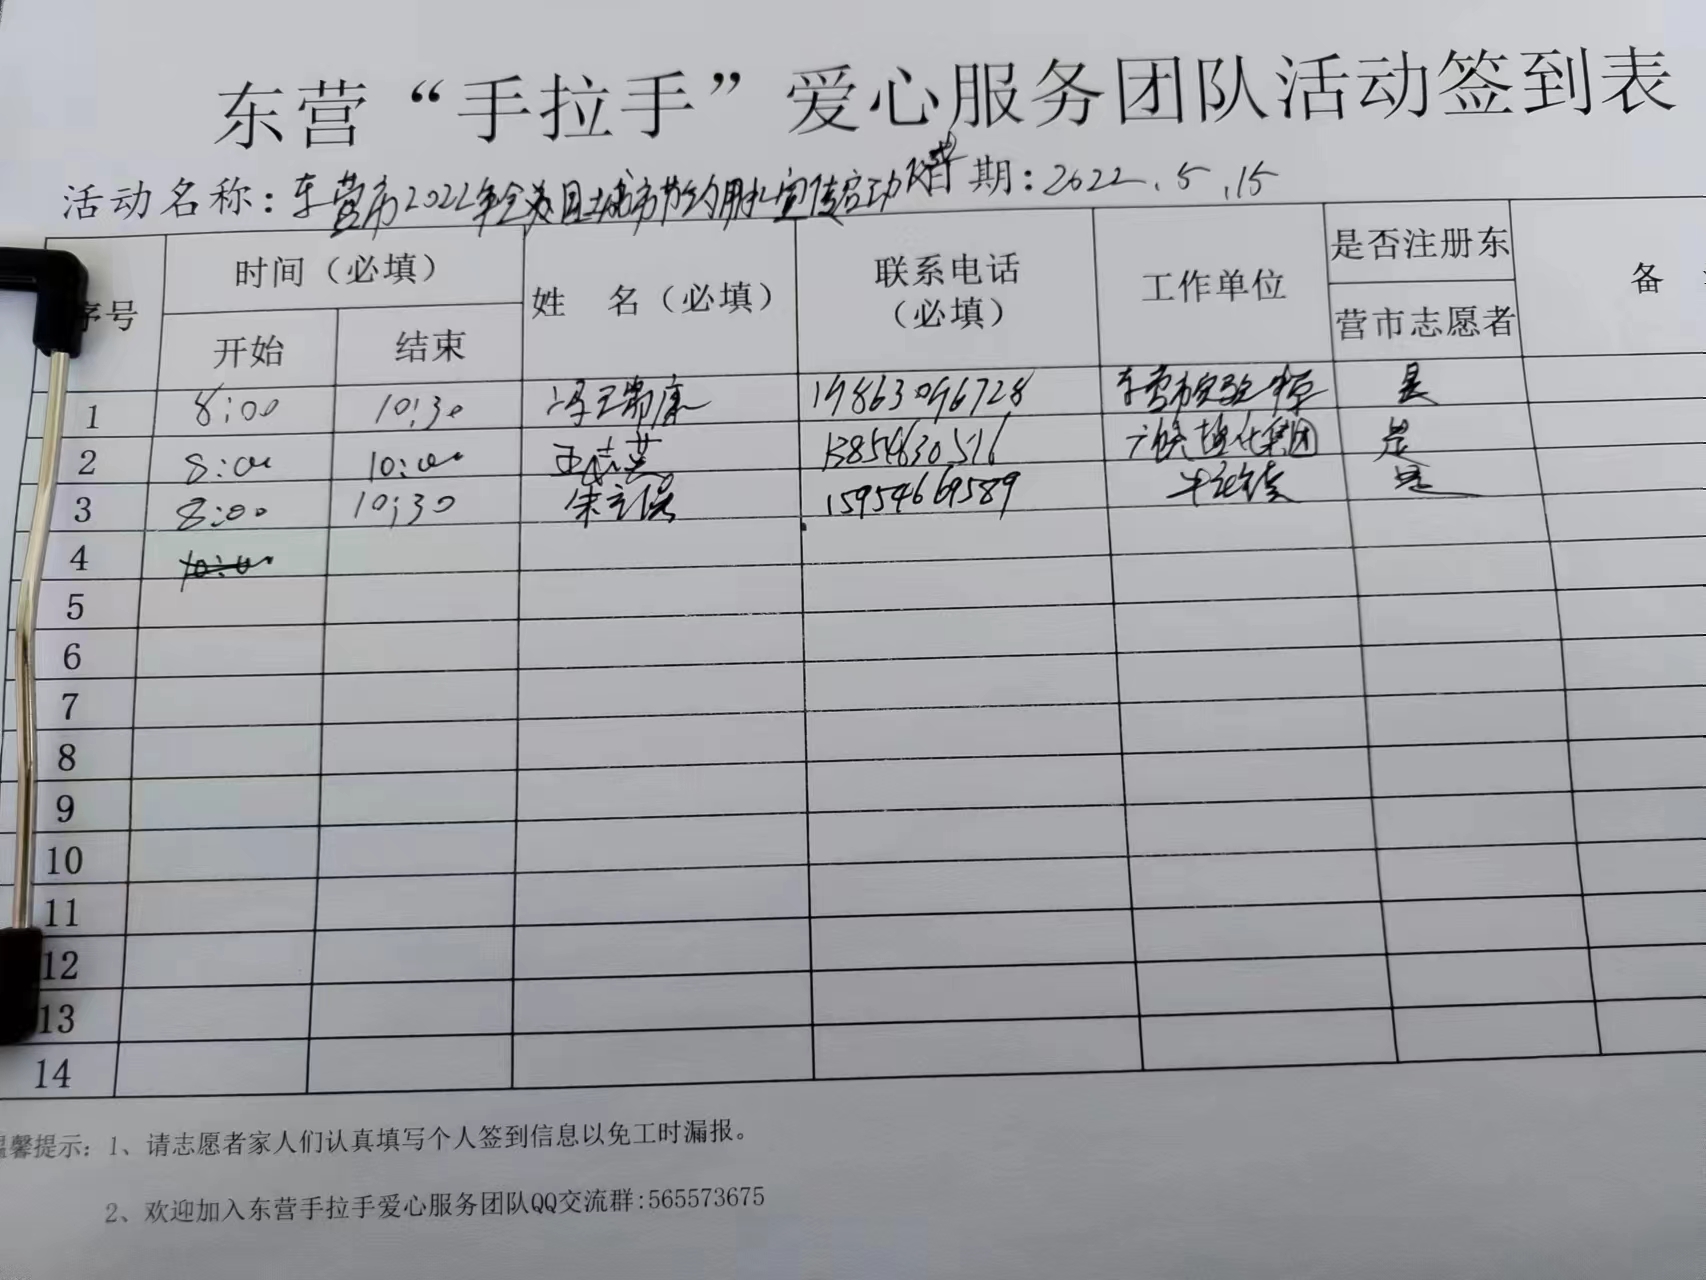 东营“手拉手”爱心服务团队活动签到表
活动名称：东营市2022年全国城市节约用水宣传启动 期：2022.5.15
序号 时间（必填） 姓 名（必填） 联系电话（必填） 工作单位 是否注册东营市志愿者 备
开始 结束
1 8:00 10:30 冯玉 康 19863096728 东营市实验中学 是
2 8:00 10:00 王志英 13854630516 集团 是
3 8:00 10:30 朱立保 15954669589 是
4
5
6
7
8
9
10
11
12
13
14
馨提示：1、请志愿者家人们认真填写个人签到信息以免工时漏报。
2、欢迎加入东营手拉手爱心服务团队QQ交流群:565573675